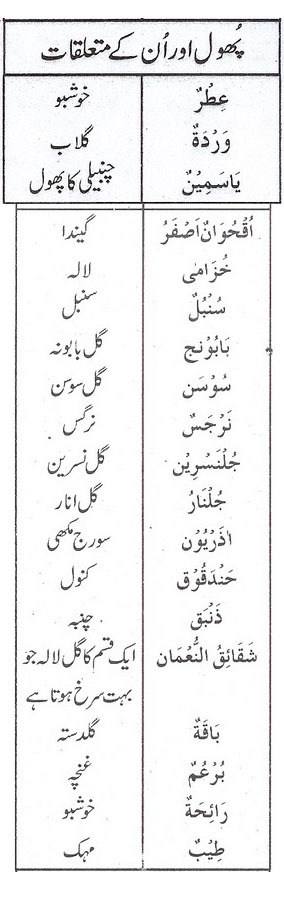 پُھول اور اُن کے متعلقات
عِطْرٌ خوشبو
وَرْدَةٌ گلاب
يَاسَمِيْنٌ چنبیلی کا پھول
اُقْحُوَانٌ اَصْفَرُ گیندا
خُزَامٰى لالہ
سُنْبُلٌ سنبل
بَابُوْنج گل بابونہ
سُوْسَن گل سوسن
نَرْجَسٌ نرگس
جُلْنَسْرِيْن گل نسرین
جُلْنَارُ گل انار
اٰذَرْيُوْن سورج مکھی
حَنْدَقُوْق کنول
ذَنْبَق چنبہ
شَقَائِقُ النُّعْمَان ایک قسم کا گل لالہ جو
بہت سرخ ہوتا ہے
بَاقَةٌ گلدستہ
بُرْعُمٌ غنچہ
رَائِحَةٌ خوشبو
طِيْبٌ مہک